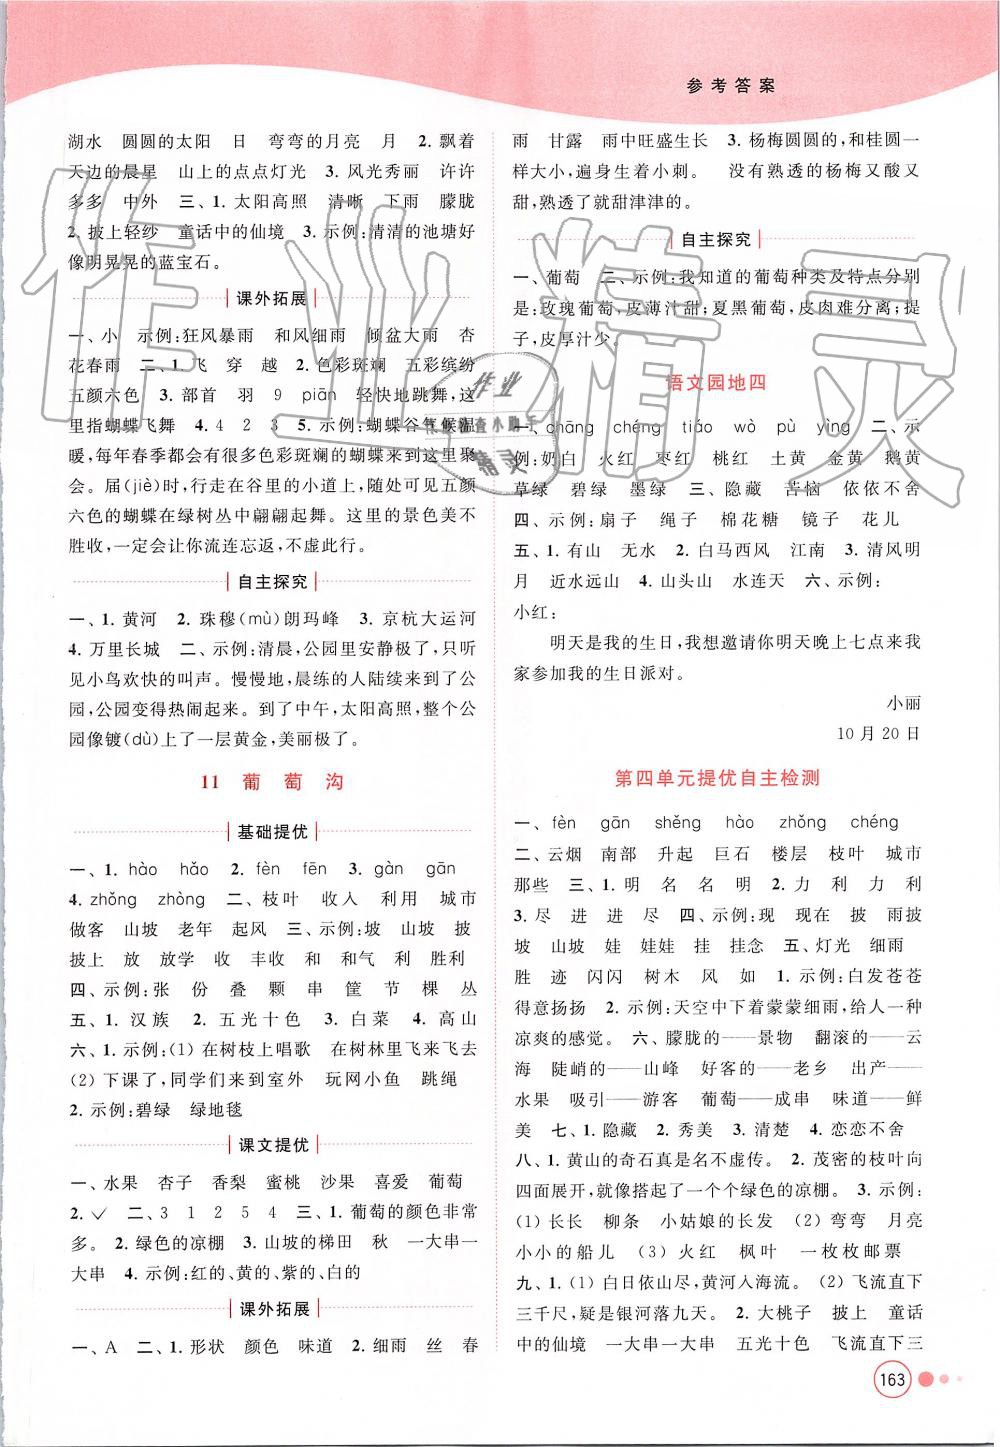 参考答案
湖水 圆圆的太阳 日 弯弯的月亮 月 2. 飘着
天边的晨星 山上的点点灯光 3. 风光秀丽 许许
多多 中外 三、1. 太阳高照 清晰 下雨 朦胧
2. 披上轻纱 童话中的仙境 3. 示例:清清的池塘好
像明晃晃的蓝宝石。
课外拓展
一、小 示例:狂风暴雨 和风细雨 倾盆大雨 杏
花春雨 二、1. 飞 穿 越 2. 色彩斑斓 五彩缤纷
五颜六色 3. 部首 羽 9 piān 轻快地跳舞,这
里指蝴蝶飞舞 4. 4 2 3 5. 示例:蝴蝶谷气候温
暖,每年春季都有很多色彩斑斓的蝴蝶来到这里聚
会。届(jiè)时,行走在谷里的小道上,随处可见五颜
六色的蝴蝶在绿树丛中翩翩起舞。这里的景色美不
胜收,一定会让你流连忘返,不虚此行。
自主探究
一、1. 黄河 2. 珠穆(mù)朗玛峰 3. 京杭大运河
4. 万里长城 二、示例:清晨,公园里安静极了,只听
见小鸟欢快的叫声。慢慢地,晨练的人陆续来到了公
园,公园变得热闹起来。到了中午,太阳高照,整个公
园像镀(dù)上了一层黄金,美丽极了。
11 葡萄沟
基础提优
一、1. hào hǎo 2. fèn fēn 3. gàn gān
4. zhǒng zhòng 二、枝叶 收入 利用 城市
做客 山坡 老年 起风 三、示例:坡 山坡 披
披上 放 放学 收 丰收 和 和气 利 胜利
四、示例:张 份 叠 颗 串 筐 节 棵 丛
五、1. 汉族 2. 五光十色 3. 白菜 4. 高山
六、1. 示例:(1) 在树枝上唱歌 在树林里飞来飞去
(2) 下课了,同学们来到室外 玩网小鱼 跳绳
2. 示例:碧绿 绿地毯
课文提优
一、水果 杏子 香梨 蜜桃 沙果 喜爱 葡萄
2. ✓ 二、3 1 2 5 4 三、1. 葡萄的颜色非常
多。 2. 绿色的凉棚 3. 山坡的梯田 秋 一大串一
大串 4. 示例:红的、黄的、紫的、白的
课外拓展
一、A 二、1. 形状 颜色 味道 2. 细雨 丝 春
雨 甘露 雨中旺盛生长 3. 杨梅圆圆的,和桂圆一
样大小,遍身生着小刺。 没有熟透的杨梅又酸又
甜,熟透了就甜津津的。
自主探究
一、葡萄 二、示例:我知道的葡萄种类及特点分别
是:玫瑰葡萄,皮薄汁甜;夏黑葡萄,皮肉难分离;提
子,皮厚汁少。
语文园地四
一、chāng chéng tiáo wò pù yìng 二、示
例:奶白 火红 枣红 桃红 土黄 金黄 鹅黄
草绿 碧绿 墨绿 三、隐藏 苦恼 依依不舍
四、示例:扇子 绳子 棉花糖 镜子 花儿
五、1. 有山 无水 2. 白马西风 江南 3. 清风明
月 近水远山 4. 山头山 水连天 六、示例:
小红:
明天是我的生日,我想邀请你明天晚上七点来我
家参加我的生日派对。
小丽
10 月 20 日
第四单元提优自主检测
一、fèn gān shěng hào zhǒng chéng
二、云烟 南部 升起 巨石 楼层 枝叶 城市
那些 三、1. 明 名 名 明 2. 力 利 力 利
3. 尽 进 进 尽 四、示例:现 现在 披 雨披
坡 山坡 娃 娃娃 挂 挂念 五、灯光 细雨
胜 迹 闪闪 树木 风 如 1. 示例:白发苍苍
得意扬扬 2. 示例:天空中下着蒙蒙细雨,给人一种
凉爽的感觉。 六、朦胧的——景物 翻滚的——云
海 陡峭的——山峰 好客的——老乡 出产——
水果 吸引——游客 葡萄——成串 味道——鲜
美 七、1. 隐藏 2. 秀美 3. 清楚 4. 恋恋不舍
八、1. 黄山的奇石真是名不虚传。 2. 茂密的枝叶向
四面展开,就像搭起了一个个绿色的凉棚。 3. 示例:
(1) 长长 柳条 小姑娘的长发 (2) 弯弯 月亮
小小的船儿 (3) 火红 枫叶 一枚枚邮票
九、1. (1) 白日依山尽,黄河入海流。 (2) 飞流直下
三千尺,疑是银河落九天。 2. 大桃子 披上 童话
中的仙境 一大串一大串 五光十色 飞流直下三
163
作业精灵
作业
作业检查小助手
精灵